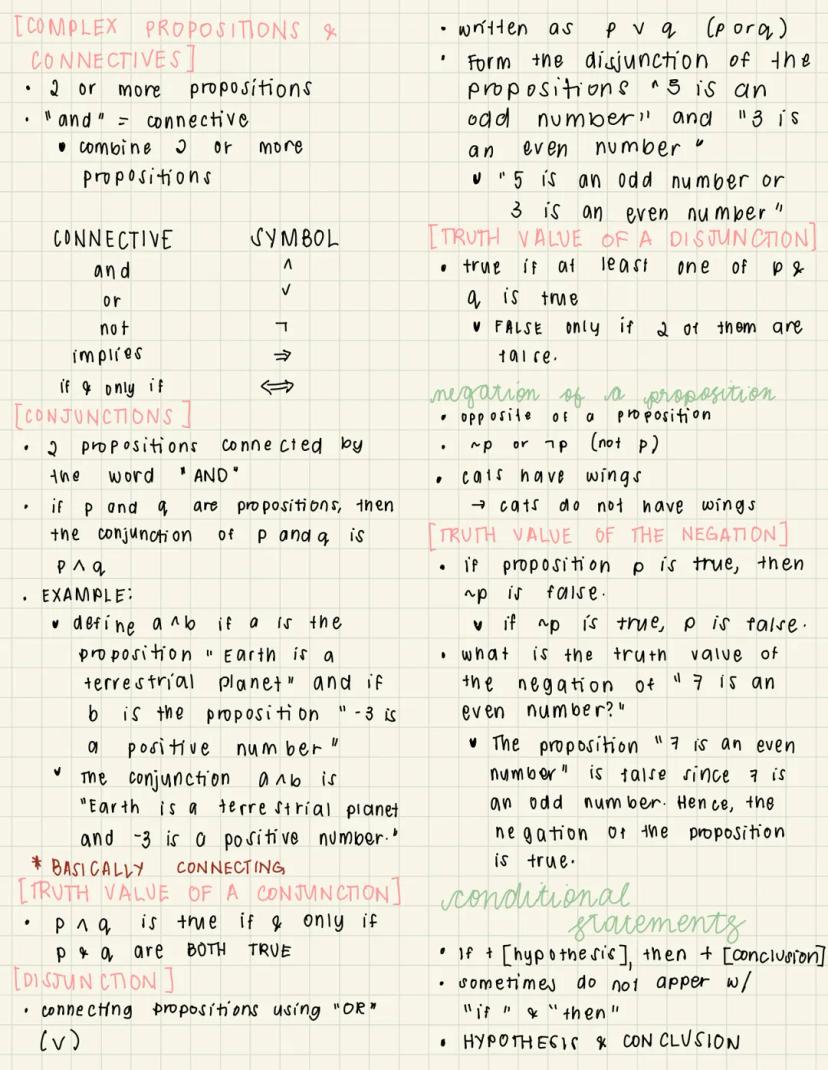 [COMPLEX PROPOSITIONS &
CONNECTIVES]
• 2 or more propositions
• "and" = connective
• combine 2 or more
propositions
CONNECTIVE SYMBOL
and ∧
or ∨
not ¬
implies ⇒
if & only if ⟺
[CONJUNCTIONS]
• 2 propositions connected by
the word "AND"
• if p and q are propositions, then
the conjunction of p and q is
p ∧ q
• EXAMPLE:
• define a∧b if a is the
proposition "Earth is a
terrestrial planet" and if
b is the proposition "-3 is
a positive number"
• The conjunction a∧b is
"Earth is a terrestrial planet
and -3 is a positive number."
* BASICALLY CONNECTING
[TRUTH VALUE OF A CONJUNCTION]
• p ∧ q is true if & only if
p & q are BOTH TRUE
[DISJUNCTION]
• connecting propositions using "OR"
(∨)
• written as p ∨ q (p or q)
• Form the disjunction of the
propositions "5 is an
odd number" and "3 is
an even number"
• "5 is an odd number or
3 is an even number"
[TRUTH VALUE OF A DISJUNCTION]
• true if at least one of p &
q is true
• FALSE only if 2 of them are
false.
negation of a proposition
• opposite of a proposition
• ~p or ¬p (not p)
• cats have wings
→ cats do not have wings
[TRUTH VALUE OF THE NEGATION]
• if proposition p is true, then
~p is false.
• if ~p is true, p is false.
• what is the truth value of
the negation of "7 is an
even number?"
• The proposition "7 is an even
number" is false since 7 is
an odd number. Hence, the
negation of the proposition
is true.
conditional
statements
• If + [hypothesis], then + [conclusion]
• sometimes do not apper w/
"if" & "then"
• HYPOTHESIS & CONCLUSION